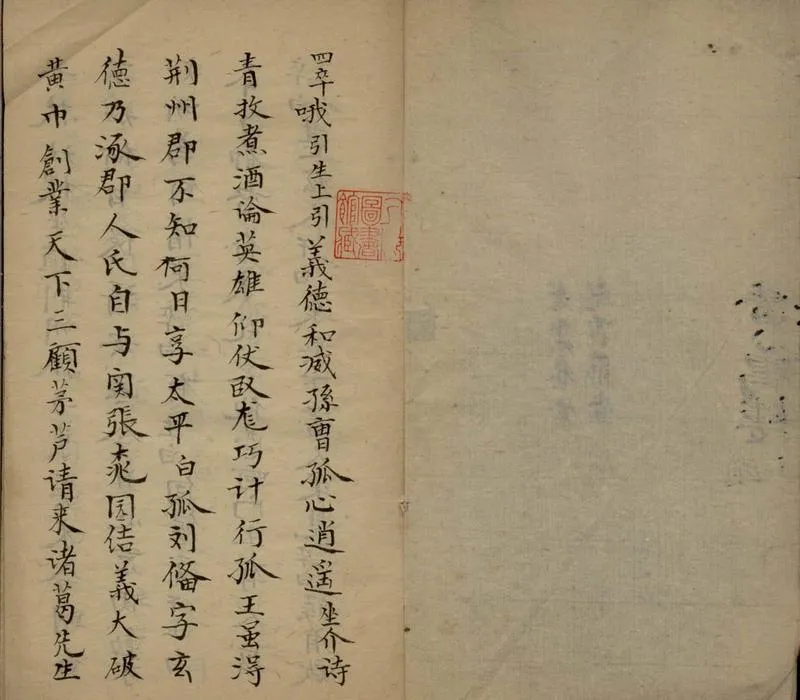 四卒哦引生上引義德和滅孫曹孤心逍遥坐介诗
青敉煮酒論英雄仰伏臥尨巧计行孤王虽淂
荆州郡不知何日享太平白孤刘俻字玄
德乃涿郡人氏自与関張桃园佶義大破
黄巾創業天下三顧茅芦请来诸葛先生